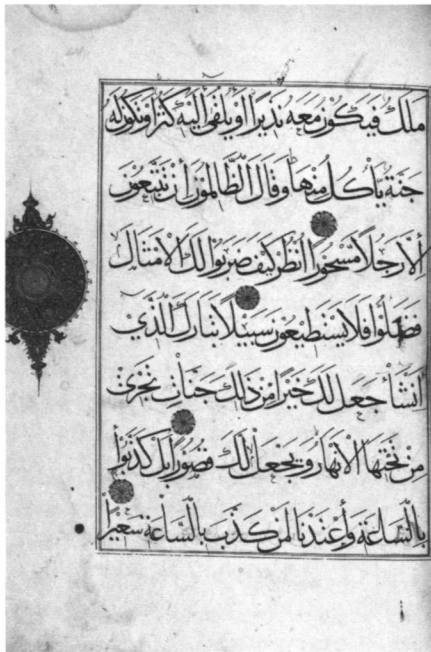 مَلَكٌ فَيَكُونَ مَعَهُ نَذِيرًا أَوْ يُلْقَىٰ إِلَيْهِ كَنْزٌ أَوْ تَكُونُ لَهُ
جَنَّةٌ يَأْكُلُ مِنْهَا وَقَالَ الظَّالِمُونَ إِنْ تَتَّبِعُونَ
إِلَّا رَجُلًا مَسْحُورًا انْظُرْ كَيْفَ ضَرَبُوا لَكَ الْأَمْثَالَ
فَضَلُّوا فَلَا يَسْتَطِيعُونَ سَبِيلًا تَبَارَكَ الَّذِي
إِنْ شَاءَ جَعَلَ لَكَ خَيْرًا مِنْ ذَلِكَ جَنَّاتٍ تَجْرِي
مِنْ تَحْتِهَا الْأَنْهَارُ وَيَجْعَلْ لَكَ قُصُورًا بَلْ كَذَّبُوا
بِالسَّاعَةِ وَأَعْتَدْنَا لِمَنْ كَذَّبَ بِالسَّاعَةِ سَعِيرًا